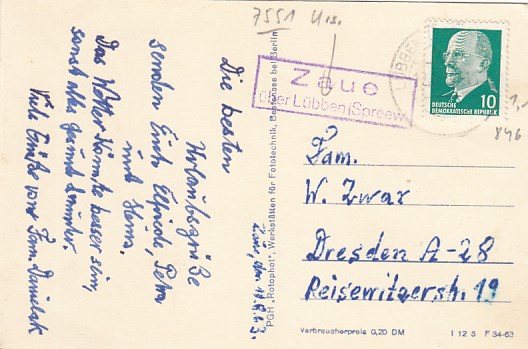 7551
Zauo
über Lübben (Spreew.
LÜBBEN
10
DEUTSCHE
DEMOKRATISCHE REPUBLIK
1,-
846
Die besten
Urlaubsgrüße
senden Euch Elfriede, Petra
und Heinz.
Das Wetter könnte besser sein,
sonst alles gesund u. munter.
Viele Grüße von Fam. Danielak
PGH „Rotophot", Werkstätten für Fototechnik, Bestensee bei Berlin
Fam.
W. Zwar
Dresden A-28
Reisewitzerstr. 19
Verbraucherpreis 0,20 DM
I 12 5 F 34-63